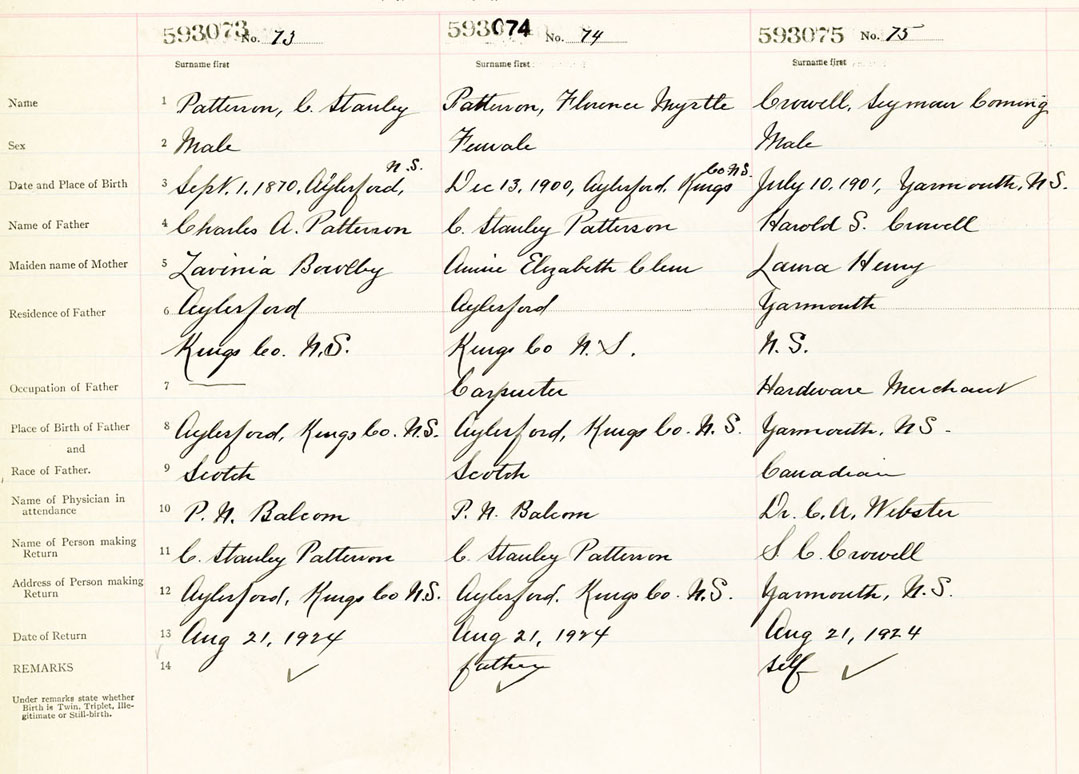 593073 No. 73
593074 No. 74
593075 No. 75
Surname first
Surname first
Surname first
Name 1 Patterson, C. Stanley
Patterson, Florence Myrtle
Crowell, Seymour Corning
Sex 2 Male
Female
Male
Date and Place of Birth 3 Sept. 1, 1870, Aylesford, N.S.
Dec 13, 1900, Aylesford, Kings Co N.S.
July 10, 1901, Yarmouth, N.S.
Name of Father 4 Charles A. Patterson
C. Stanley Patterson
Harold S. Crowell
Maiden name of Mother 5 Lavinia Bowlby
Annie Elizabeth
Laura Henry
Residence of Father 6 Aylesford
Aylesford
Yarmouth
Kings Co. N.S.
Kings Co N.S.
N.S.
Occupation of Father 7
Carpenter
Hardware Merchant
Place of Birth of Father 8 Aylesford, Kings Co. N.S.
Aylesford, Kings Co. N.S.
Yarmouth, NS.
and
Race of Father. 9 Scotch
Scotch
Canadian
Name of Physician in
attendance 10 P. N. Balcom
P. N. Balcom
Dr. C. A. Webster
Name of Person making
Return 11 C. Stanley Patterson
C. Stanley Patterson
S. C. Crowell
Address of Person making
Return 12 Aylesford, Kings Co N.S.
Aylesford, Kings Co. N.S.
Yarmouth, N.S.
Date of Return 13 Aug 21, 1924
Aug 21, 1924
Aug 21, 1924
REMARKS 14
father
self
Under remarks state whether
Birth is Twin, Triplet, Ille-
gitimate or Still-birth.